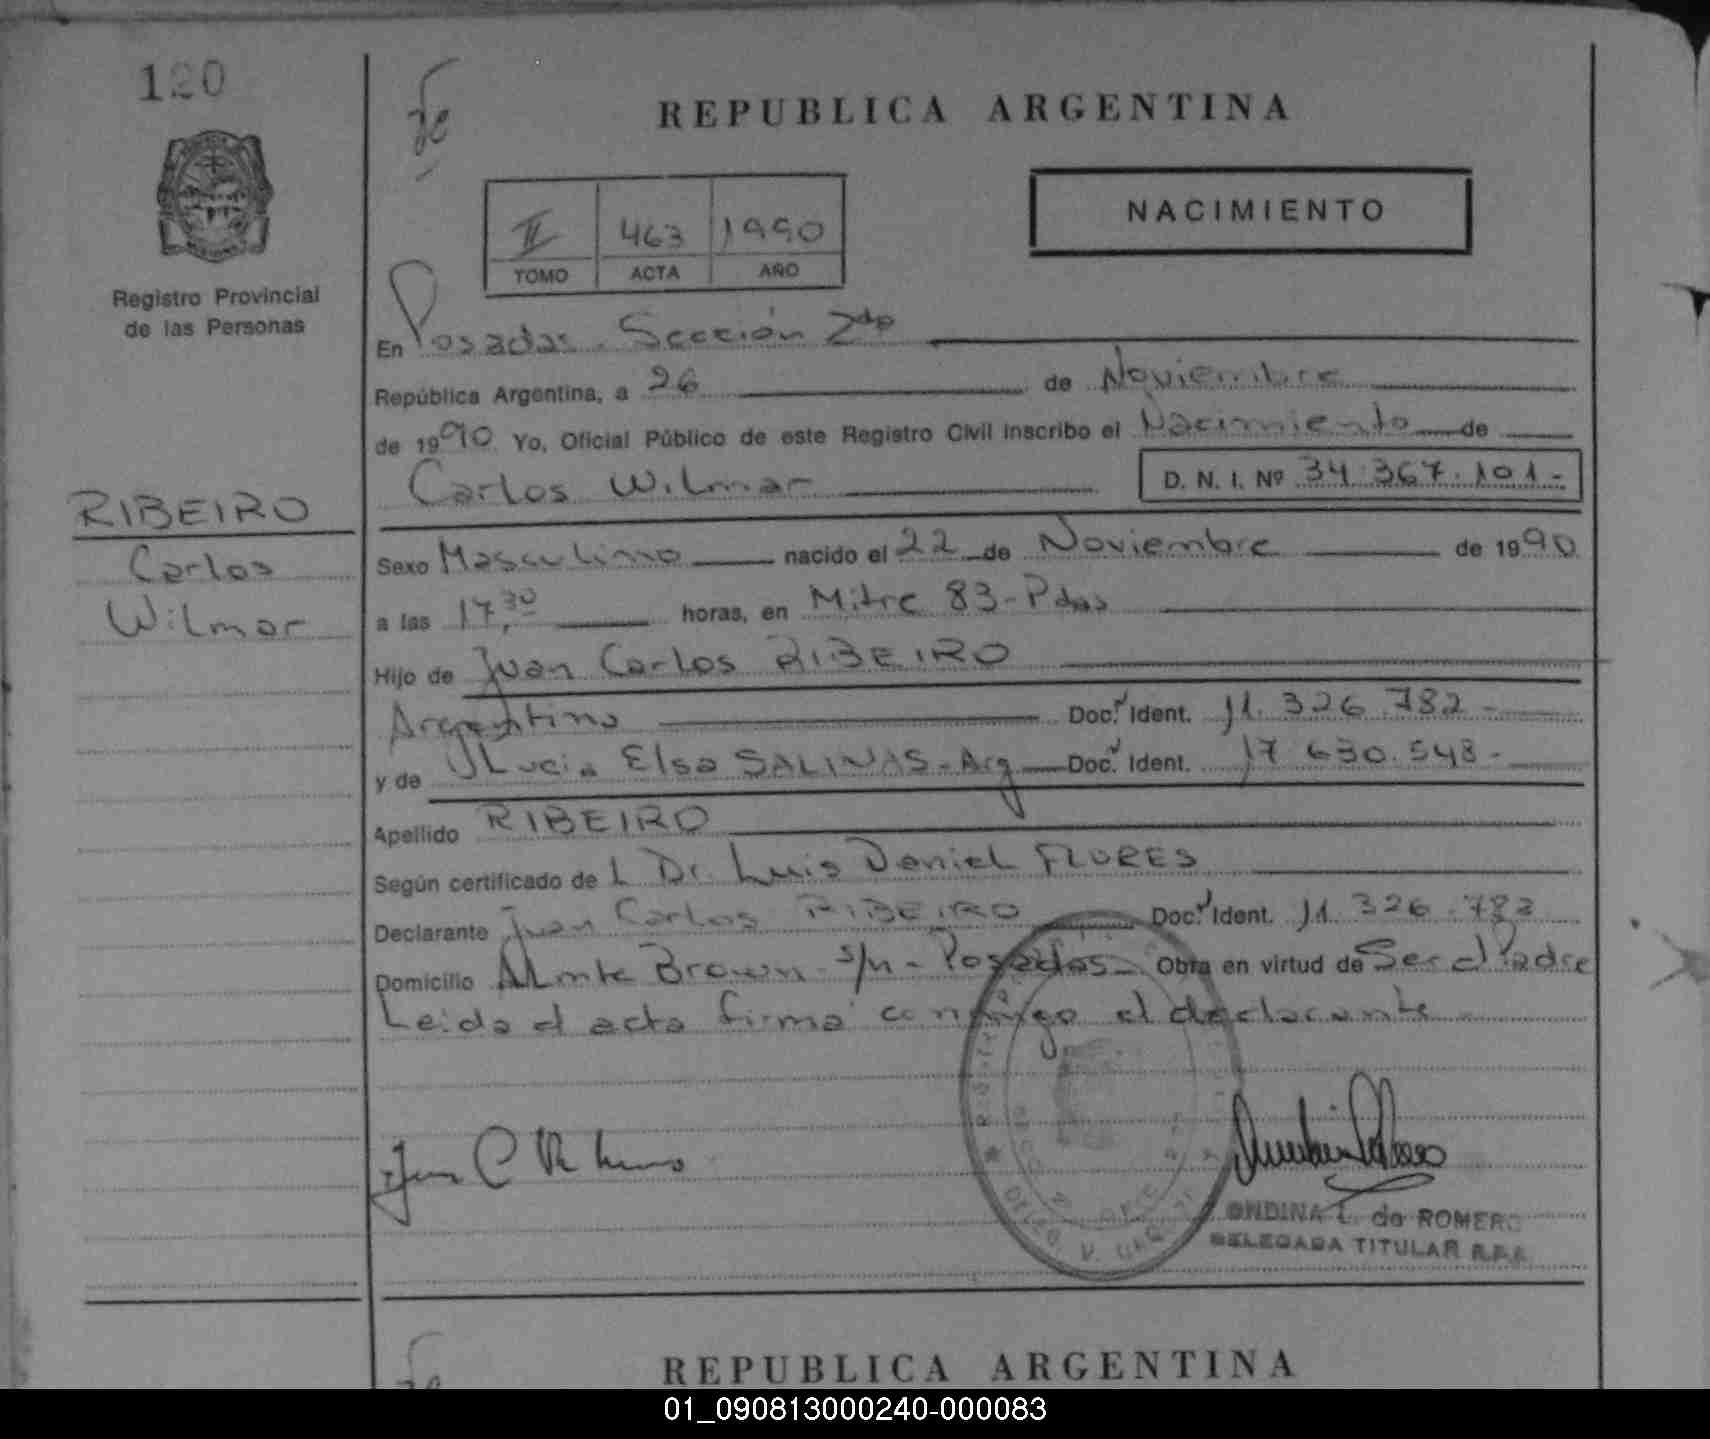 120
REPUBLICA ARGENTINA
II 463 1990
TOMO ACTA AÑO
NACIMIENTO
Registro Provincial
de las Personas
En Posadas. Sección 2da
República Argentina, a 26 de Noviembre
de 1990 Yo, Oficial Público de este Registro Civil inscribo el Nacimiento de
Carlos Wilmar D. N. I. Nº 34.367.101.-
RIBEIRO
Carlos
Wilmar
Sexo Masculino nacido el 22 de Noviembre de 1990
a las 17,30 horas, en Mitre 83-Pdas
Hijo de Juan Carlos RIBEIRO
Argentino Doc. Ident. 11.326.782-
y de Lucia Elsa SALINAS-Arg Doc. Ident. 17.630.548-
Apellido RIBEIRO
Según certificado de L Dr. Luis Daniel FLORES
Declarante Juan Carlos RIBEIRO Doc. Ident. 11.326.782
Domicilio Almte Brown s/n - Posadas- Obra en virtud de Ser el Padre
Leida el acta firma conmigo el declarante
ONDINA L. de ROMERO
DELEGADA TITULAR R.P.P.
REPUBLICA ARGENTINA
01_090813000240-000083